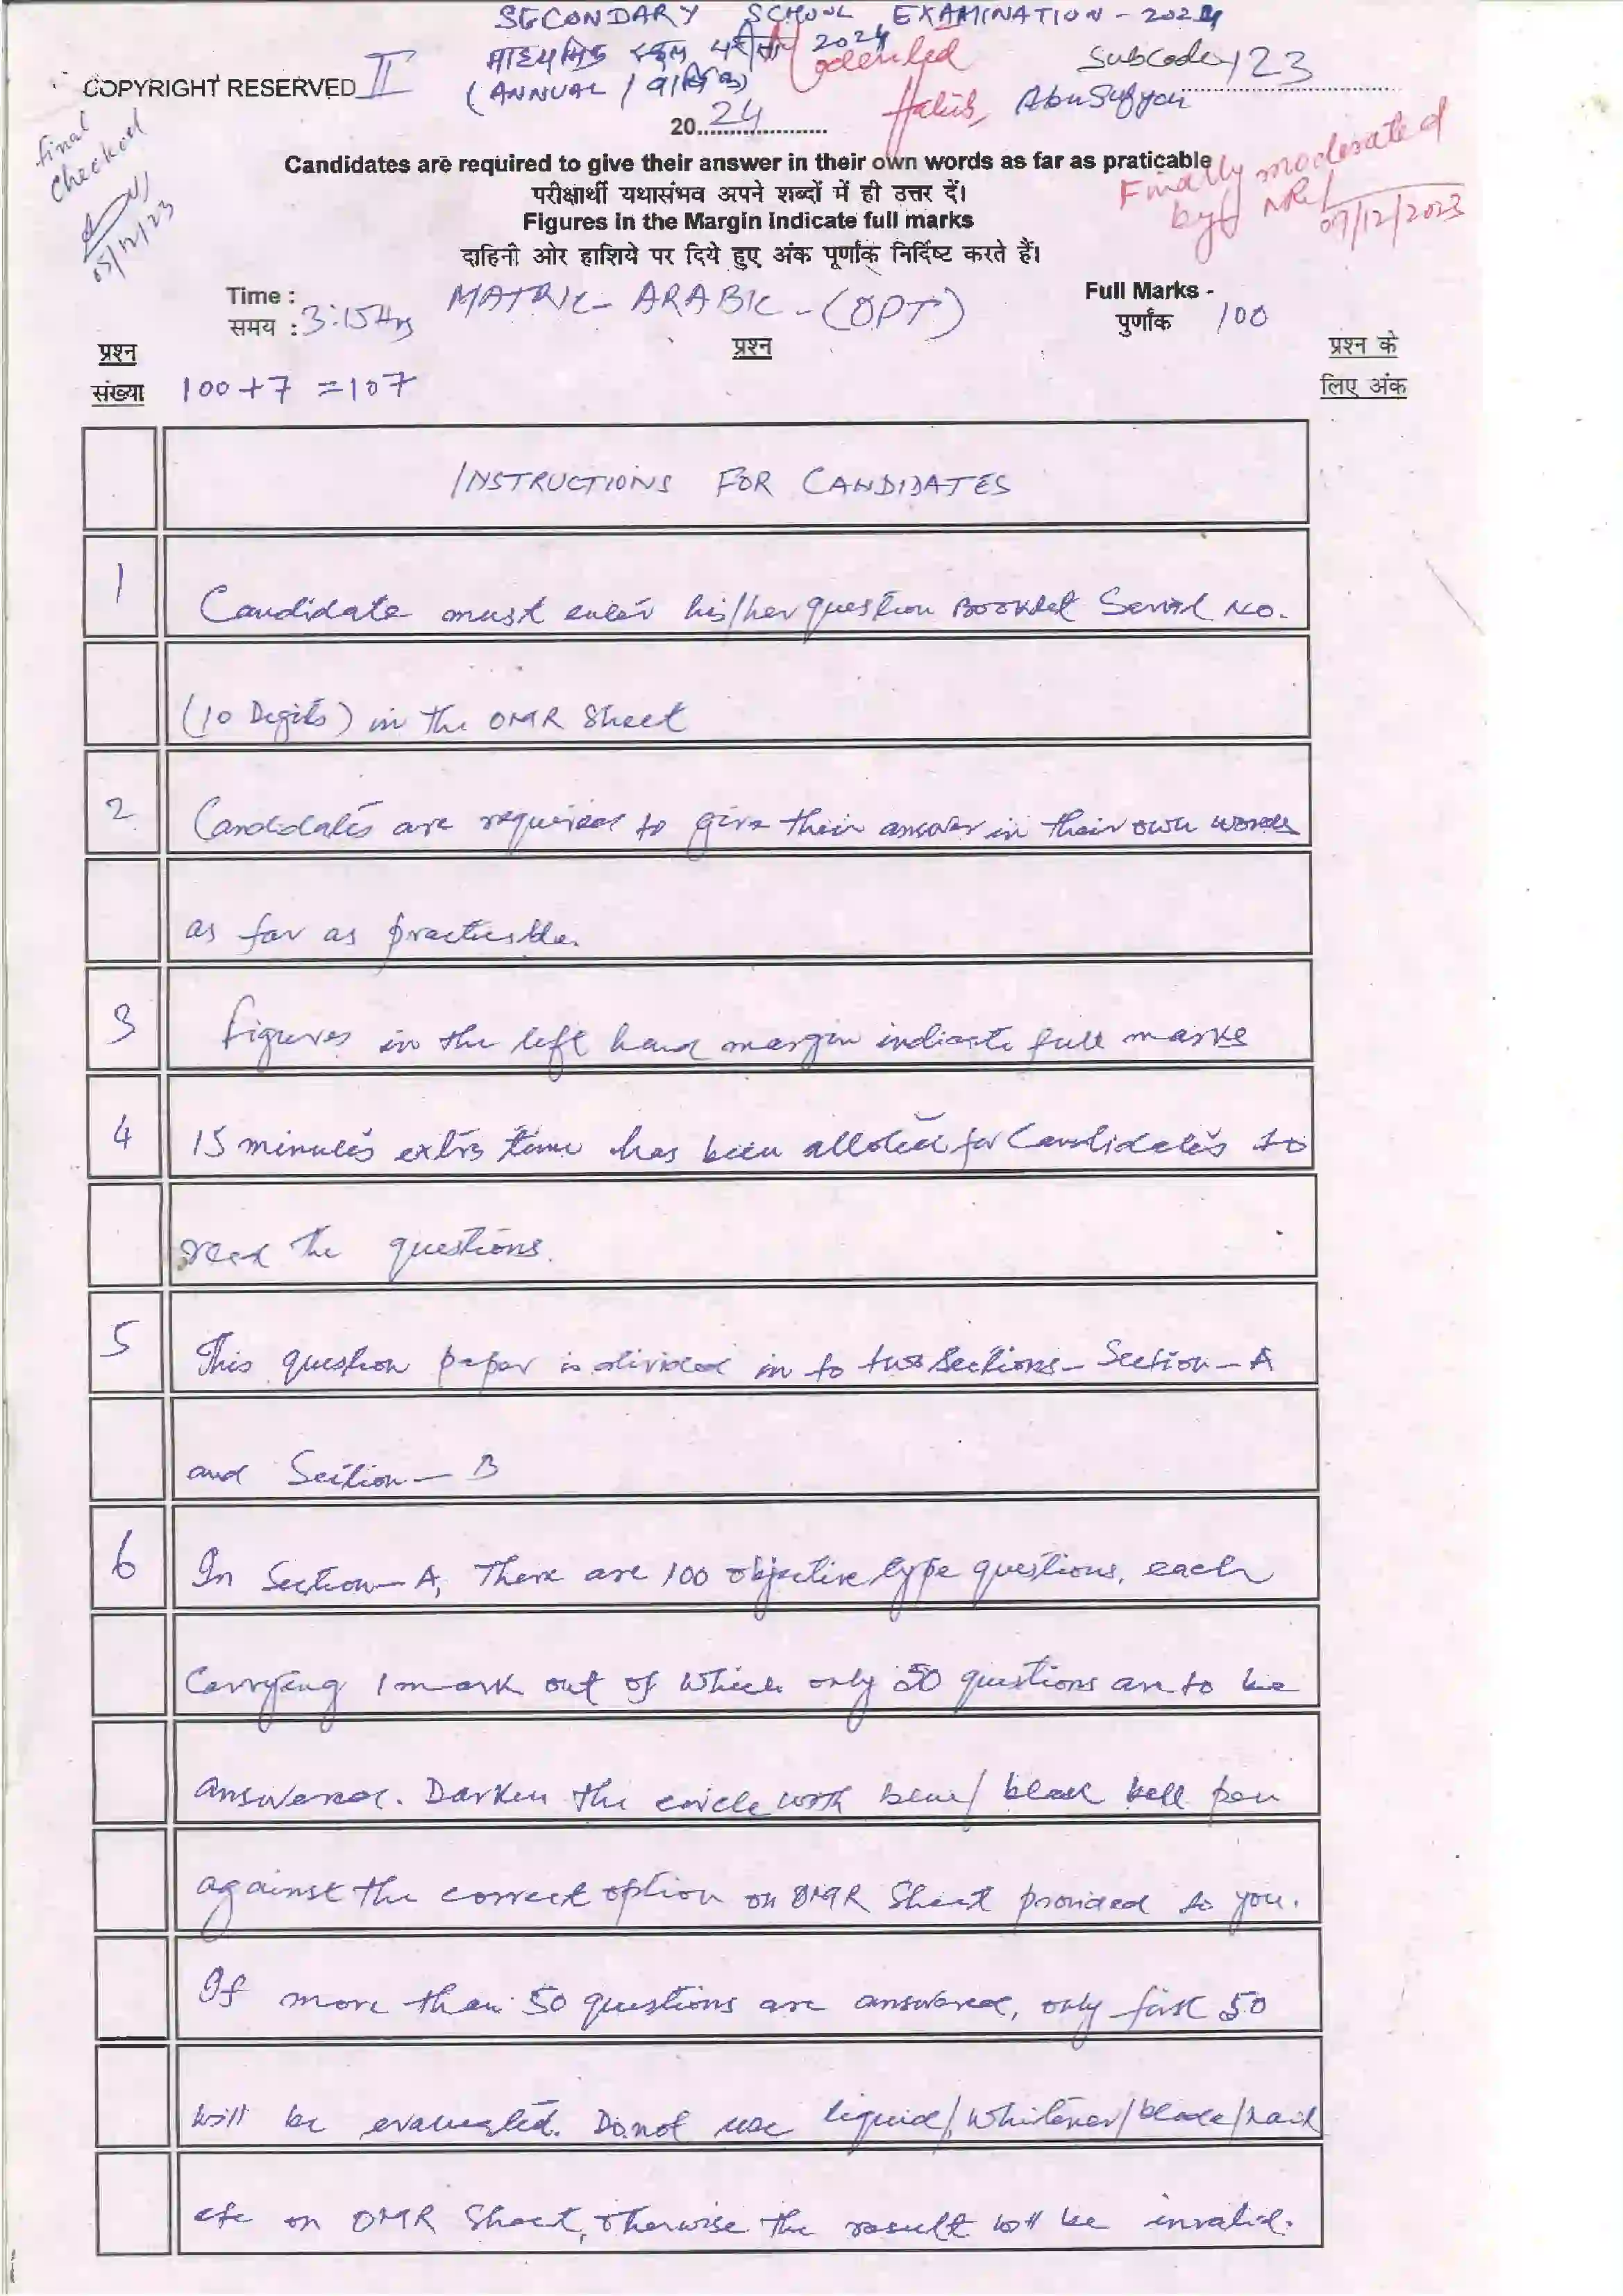 SECONDARY SCHOOL EXAMINATION - 2024
माध्यमिक स्कूल परीक्षा 2024
COPYRIGHT RESERVED II
(ANNUAL / वार्षिक)
Subcode 123
Abu Sufyan
final
checked
05/12/23
20 24
Candidates are required to give their answer in their own words as far as praticable
परीक्षार्थी यथासंभव अपने शब्दों में ही उत्तर दें।
Figures in the Margin indicate full marks
दाहिनी ओर हाशिये पर दिये हुए अंक पूर्णांक निर्दिष्ट करते हैं।
Finally moderated
by
09/12/2023
Time :
समय : 3:15 Hrs
MATRIC - ARABIC - (OPT)
Full Marks -
पुर्णांक 100
प्रश्न
संख्या
100 + 7 = 107
प्रश्न
प्रश्न के
लिए अंक
INSTRUCTIONS FOR CANDIDATES
1 Candidate must enter his/her question Booklet Serial No.
(10 Degits) in the OMR Sheet
2 Candidates are required to give their answer in their own words
as far as practicable.
3 figures in the left hand margin indicate full marks
4 15 minutes extra time has been alloted for Candidates to
read the questions.
5 This question paper is divided in to two Sections - Section - A
and Section - B
6 In Section - A, There are 100 objective type questions, each
Carrying 1 mark out of which only 50 questions are to be
answered. Darken the circle with blue/ black ball pen
against the correct option on OMR Sheet provided to you.
If more than 50 questions are answered, only first 50
will be evaluated. Do not use liquid/Whitener/blade/nail
etc on OMR Sheet, otherwise the result will be invalid.